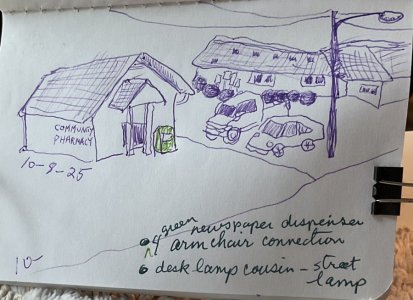 COMMUNITY
PHARMACY
10-8-25
green
newspaper dispenser
arm chair connection
desk lamp cousin - street
lamp
10-